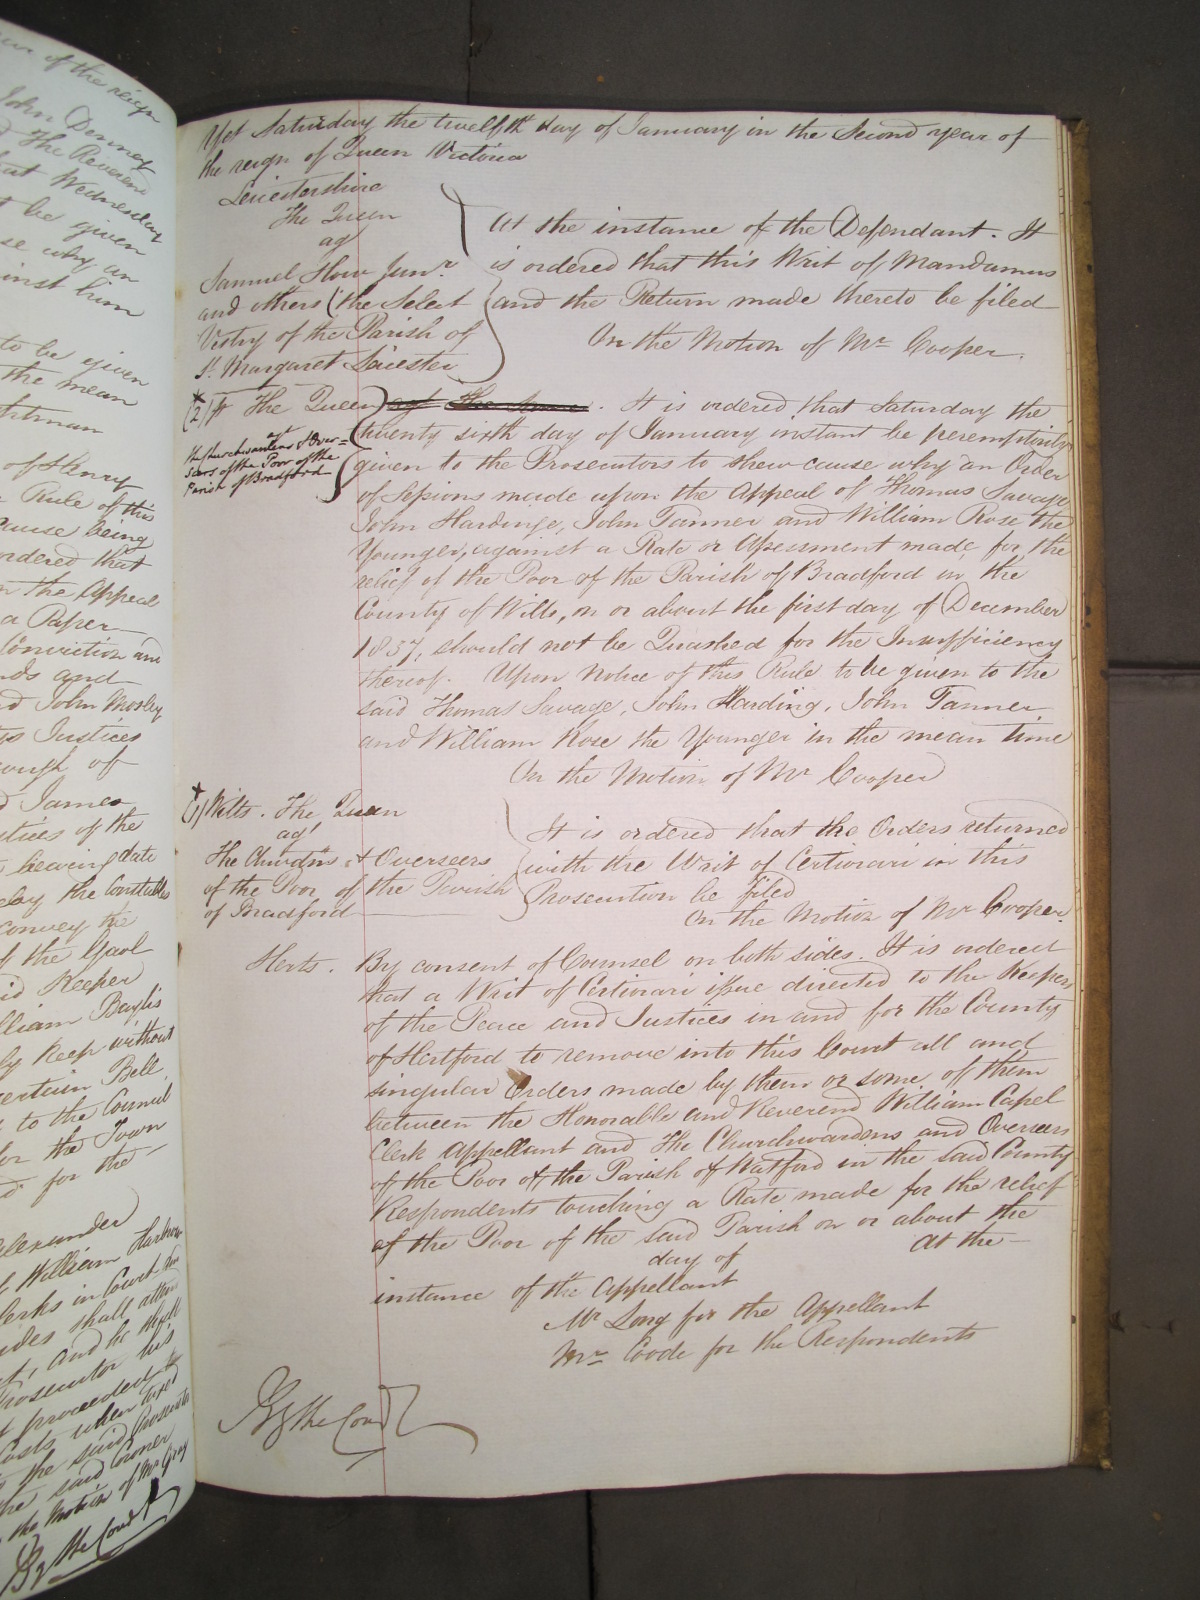 Yet Saturday the twelfth day of January in the Second year of
the reign of Queen Victoria
Leicestershire
The Queen
agt
Samuel How Junr
and others (the Select
Vestry of the Parish of
St. Margaret Leicester
At the instance of the Defendant. It
is ordered that this Writ of Mandamus
and the Return made thereto be filed
On the Motion of Mr Cooper.
(2) The Queen agt the same. It is ordered that Saturday the
agt
the Churchwardens & Over=
seers of the Poor of the
Parish of Bradford
twenty sixth day of January instant be peremptorily
given to the Prosecutors to shew cause why an Order
of Sessions made upon the Appeal of Thomas Savage
John Hardinge, John Tanner and William Rose the
Younger, against a Rate or Assessment made for the
relief of the Poor of the Parish of Bradford in the
County of Wilts, on or about the first day of December
1837, should not be Quashed for the Insufficiency
thereof. Upon Notice of this Rule to be given to the
said Thomas Savage, John Harding, John Tanner
and William Rose the Younger in the mean time
On the Motion of Mr Cooper
(1) Wilts. The Queen
agt
The Chwdns & Overseers
of the Poor of the Parish
of Bradford
It is ordered that the Orders returned
with the Writ of Certiorari in this
Prosecution be filed
On the Motion of Mr Cooper.
Herts. By consent of Counsel on both sides. It is ordered
that a Writ of Certiorari issue directed to the Keepers
of the Peace and Justices in and for the County
of Hertford to remove into this Court all and
singular Orders made by them or some of them
between the Honorable and Reverend William Capel
Clerk Appellant and The Churchwardens and Overseers
of the Poor of the Parish of Watford in the said County
Respondents touching a Rate made for the relief
of the Poor of the said Parish on or about the
day of At the
instance of the Appellant
Mr Long for the Appellant
Mr Coode for the Respondents
By the Court
of the reign
John Denney
The Reverend
that Wednesday
be given
se why an
inst him
to be given
the mean
of Henry
Rule of this
ause being
ordered that
the Appeal
a Paper
Conviction and
ds and
John Morley
Justices
ough of
James
stices of the
bearing date
the Constables
convey the
the Gaol
id Keeper
William Baylis
keep without
certain Bell
to the Council
for the Town
for the
Alexander
William
Clerks in Court
ides shall
and he
Prosecutor his
proceeded
Costs when taxed
the said Prosecutor
the said Coroner
the Motion of Mr Gray
By the Court